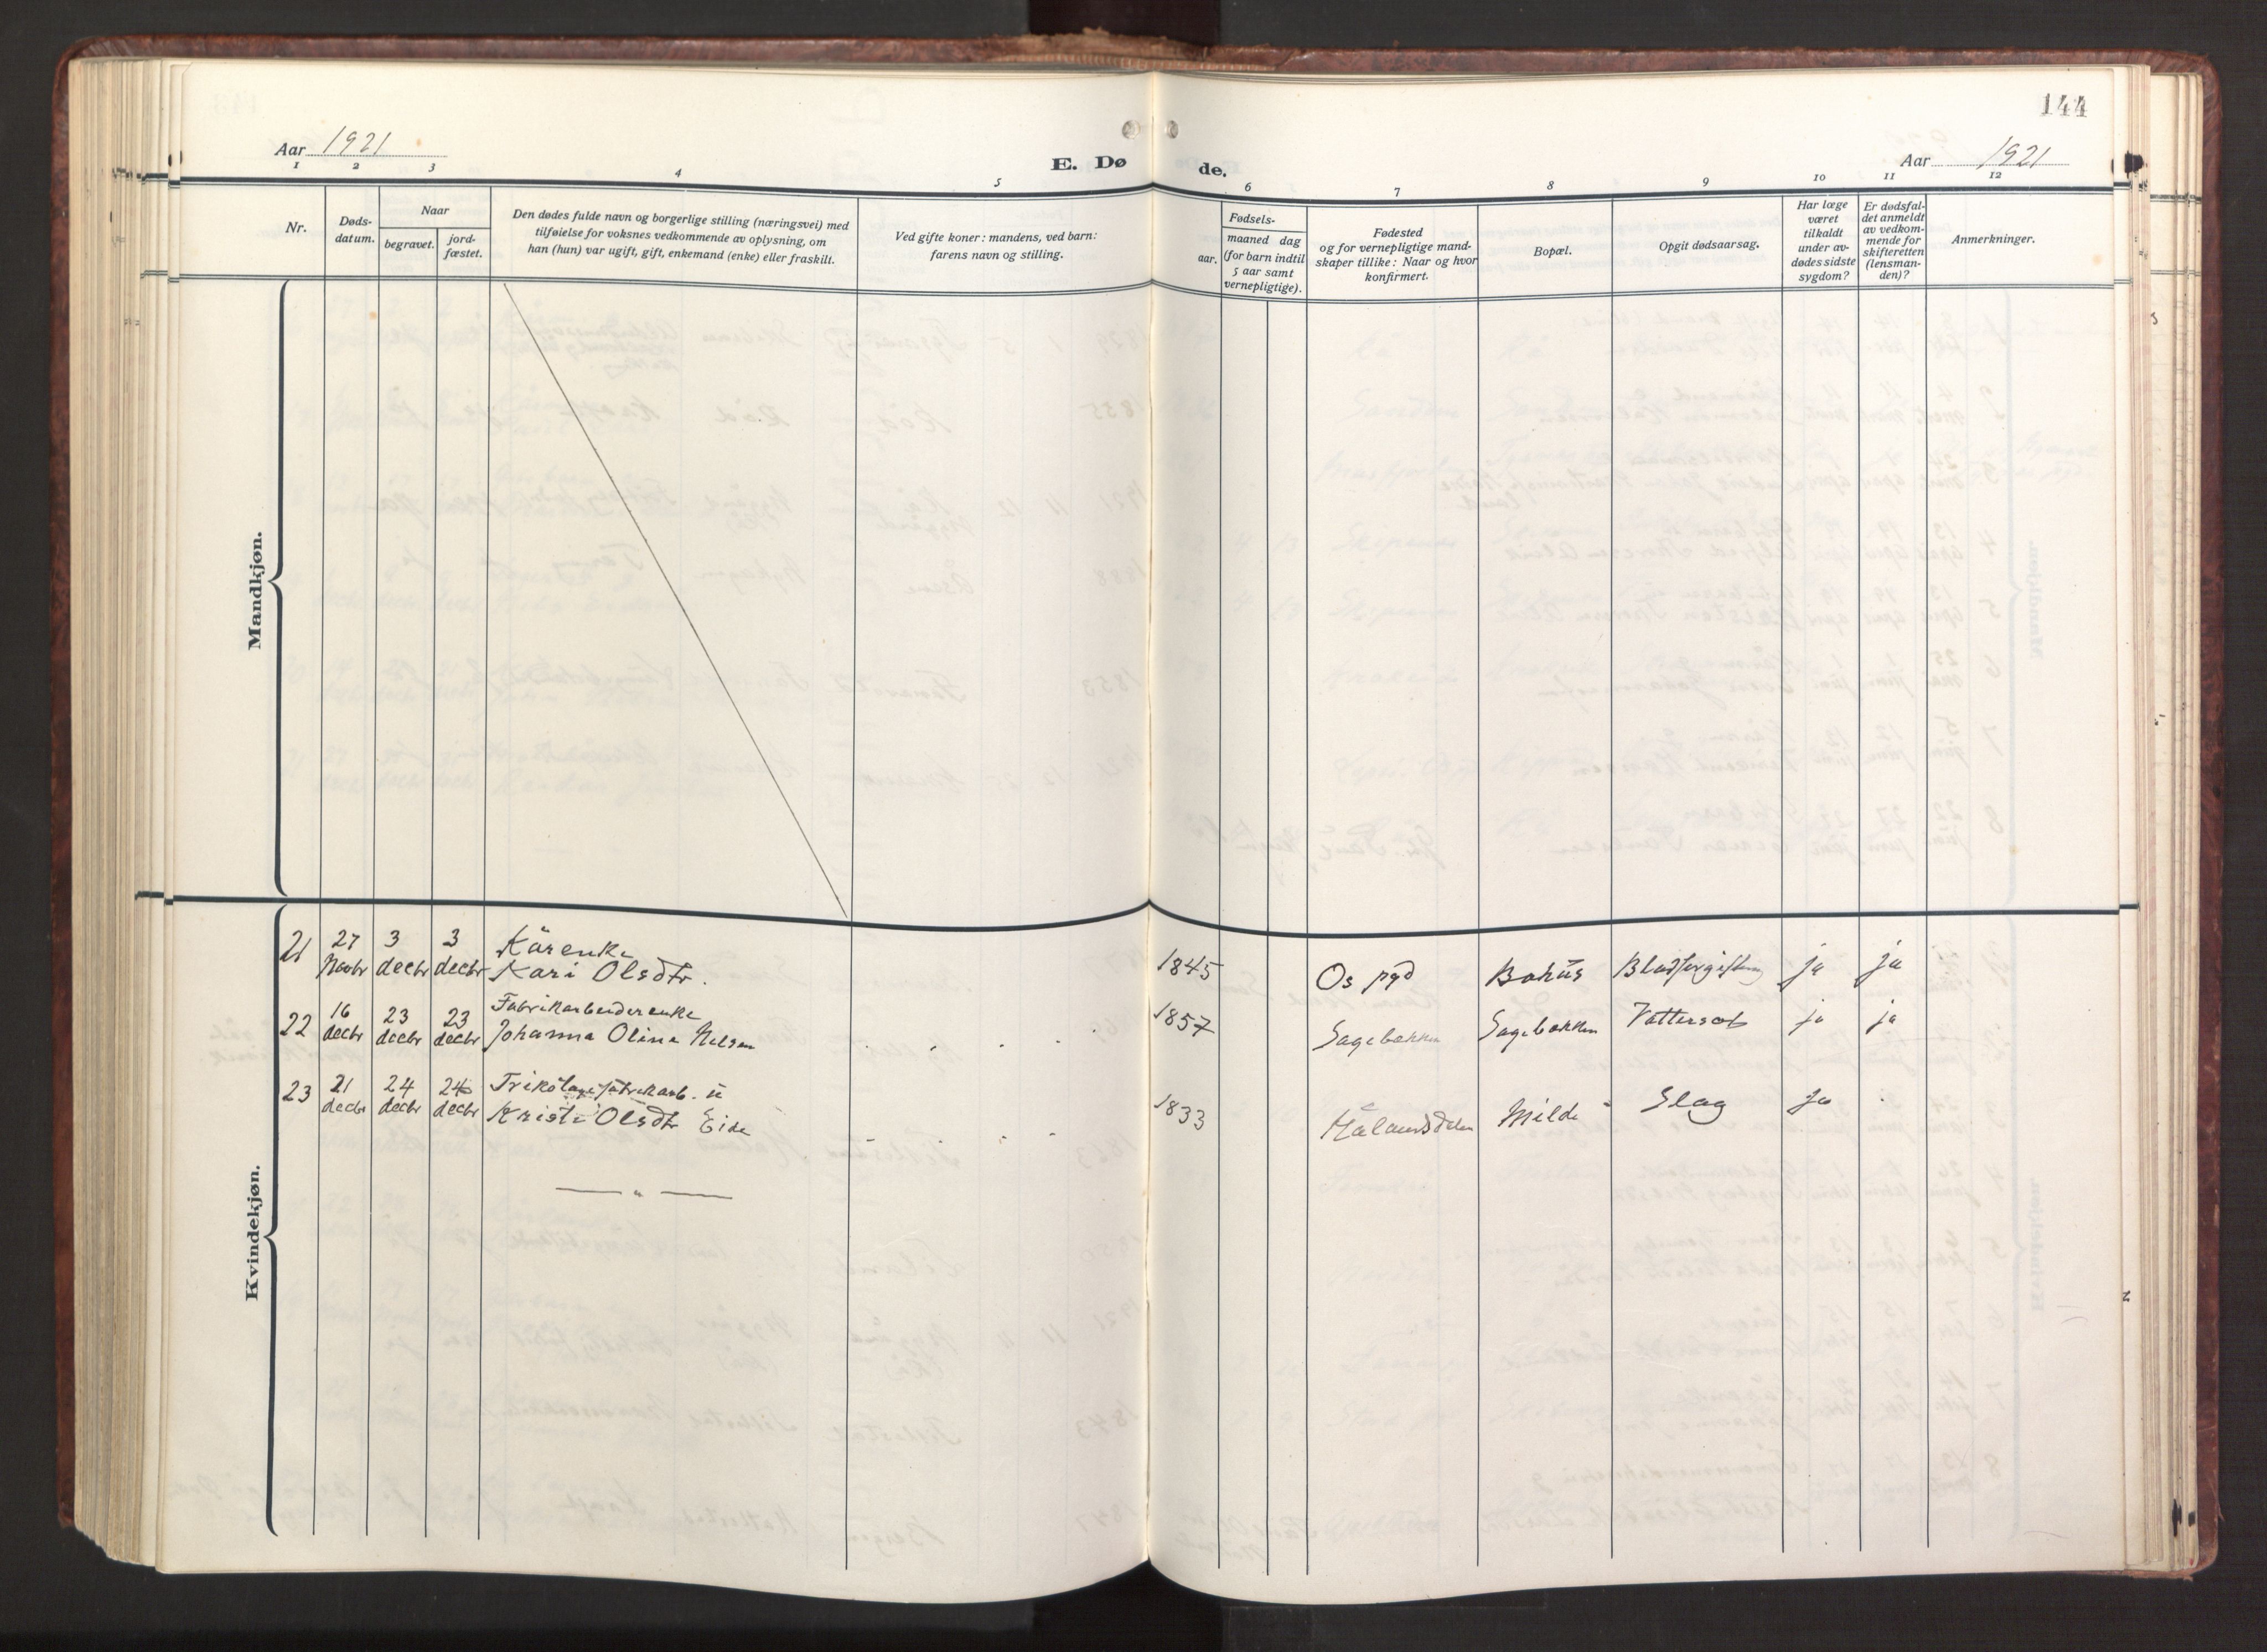 144
Aar 1921
E. Dø
de.
Aar 1921
1 2 3 4 5 6 7 8 9 10 11 12
Nr.
Døds-
datum.
Naar
begravet.
jord-
fæstet.
Den dødes fulde navn og borgerlige stilling (næringsvei) med
tilføielse for voksnes vedkommende av oplysning, om
han (hun) var ugift, gift, enkemand (enke) eller fraskilt.
Ved gifte koner: mandens, ved barn:
farens navn og stilling.
Fødsels-
aar.
maaned dag
(for barn indtil
5 aar samt
vernepligtige).
Fødested
og for vernepligtige mand-
skaper tillike: Naar og hvor
konfirmert.
Bopæl.
Opgit dødsaarsag.
Har læge
været
tilkaldt
under av-
dødes sidste
sygdom?
Er dødsfal-
det anmeldt
av vedkom-
mende for
skifteretten
(lensman-
den)?
Anmerkninger.
Mandkjøn.
Kvindekjøn.
21 27 3 3 Kårenke
Novbr decbr decbr Kari Olsdtr. 1845 Os pgd Bahús Blodforgiftning ja ja
22 16 23 23 Fabrikarbeiderenke
decbr decbr decbr Johanna Olina Nelsen 1857 Sagebakken Sagebakken Vattersot ja ja
23 21 24 24 Trikotagefabrikarb. ú
decbr decbr decbr Kristi Olsdtr Eide 1833 Hålandsdalen Milde Slag ja